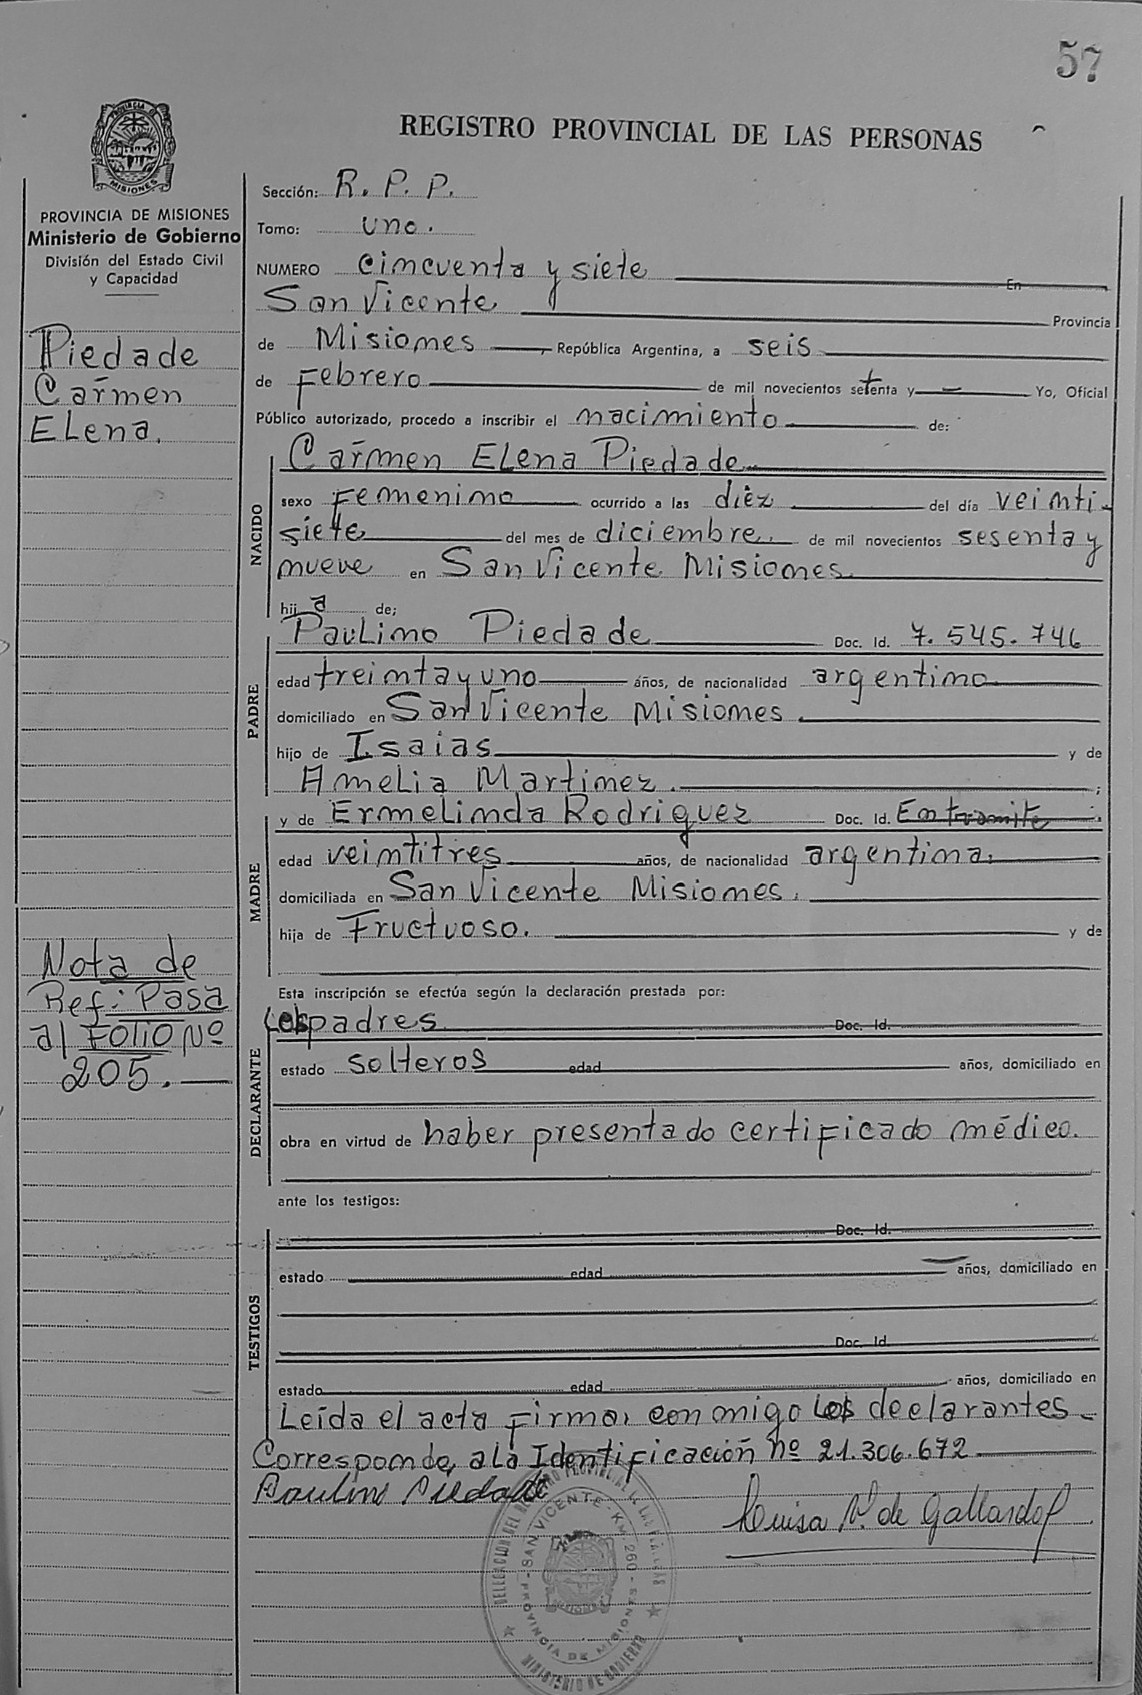 57
REGISTRO PROVINCIAL DE LAS PERSONAS
PROVINCIA DE MISIONES
PROVINCIA DE MISIONES
Ministerio de Gobierno
División del Estado Civil
y Capacidad
Piedade
Carmen
ELena.
Nota de
Ref: Pasa
al FOLIO Nº
205.
Sección: R. P. P.
Tomo: uno.
NUMERO cincuenta y siete En
San Vicente Provincia
de Misiones, República Argentina, a seis
de Febrero de mil novecientos setenta y — Yo, Oficial
Público autorizado, procedo a inscribir el nacimiento de:
NACIDO
Carmen ELena Piedade
sexo Femenino ocurrido a las diez del día veinti-
siete del mes de diciembre de mil novecientos sesenta y
nueve en San Vicente Misiones
hija de;
PADRE
Paulino Piedade Doc. Id. 7.545.746
edad treinta y uno años, de nacionalidad argentino
domiciliado en San Vicente Misiones.
hijo de Isaias y de
Amelia Martinez.;
MADRE
y de Ermelinda Rodriguez Doc. Id. En tramite
edad veintitres años, de nacionalidad argentina.
domiciliada en San Vicente Misiones.
hija de Fructuoso. y de
Esta inscripción se efectúa según la declaración prestada por:
DECLARANTE
Los padres Doc. Id.
estado solteros edad años, domiciliado en
obra en virtud de haber presentado certificado médico.
ante los testigos:
TESTIGOS
Doc. Id.
estado edad años, domiciliado en
Doc. Id.
estado edad años, domiciliado en
Leída el acta firma, conmigo los declarantes-
Corresponde, a la Identificación nº 21.306.672
Paulino Piedade
Luisa V. de Gallardo
SAN VICENTE - KM. 260 - PROVINCIA DE MISIONES
MINISTERIO DE GOBIERNO